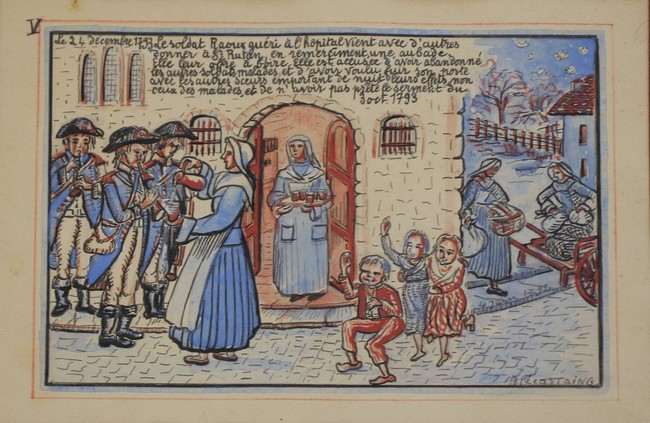 V
Le 24 décembre 1793 Le soldat Raoux guéri à l'hôpital vient avec d'autres
donner à Sr Rutan, en remerciment, une aubade.
Elle leur offre à boire. Elle est accusée d'avoir abandonné
les autres soldats malades, et d'avoir voulu fuir son poste
avec les autres sœurs emportant de nuit leurs effets non
ceux des malades, et de n'avoir pas prêté le serment du
3 oct. 1793